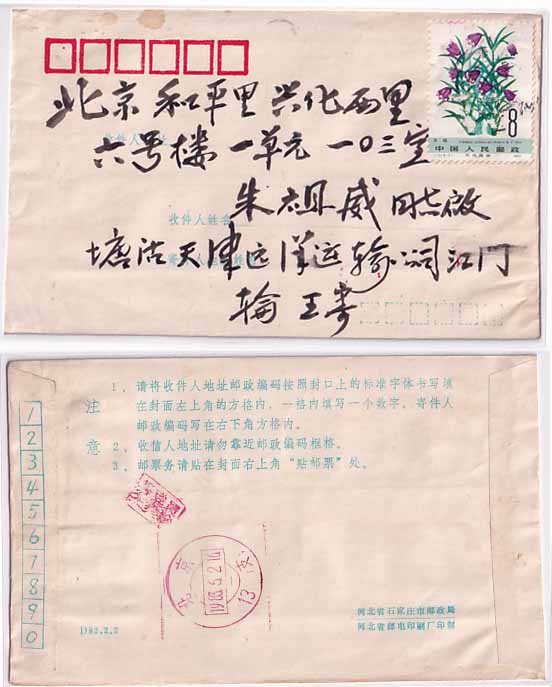 北京和平里兴化西里
六号楼一单元一〇三室
收件人姓名
朱祖威同志啟
塘沽天津远洋运输公司江门
轮王寄
8
中国人民邮政
1、请将收件人地址邮政编码按照封口上的标准字体书写填
在封面左上角的方格内，一格内填写一个数字。寄件人
邮政编码写在右下角方格内。
注意
2、收信人地址请勿靠近邮政编码框格。
3、邮票务请贴在封面右上角“贴邮票”处。
1
2
3
4
5
6
7
8
9
0
北京
1983.5.2
13
1982.2.2
河北省石家庄市邮政局
河北省邮电印刷厂印制